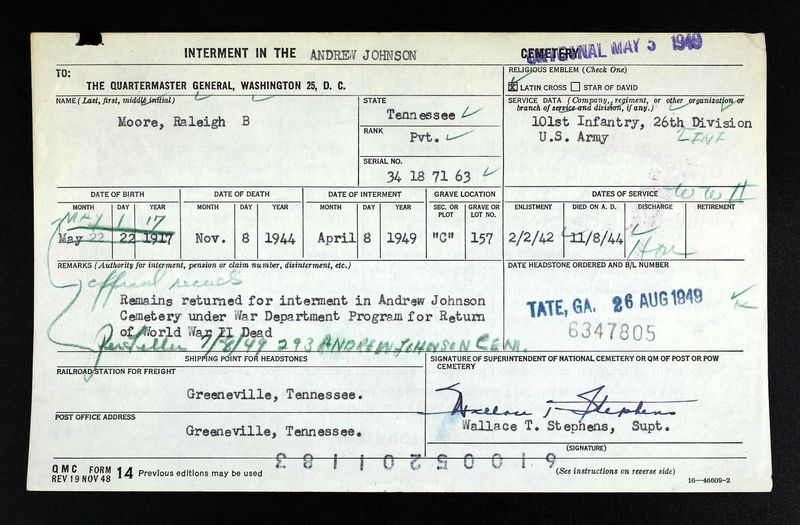 INTERMENT IN THE ANDREW JOHNSON CEMETERY
ORIGINAL MAY 5 1949
TO:
THE QUARTERMASTER GENERAL, WASHINGTON 25, D. C.
RELIGIOUS EMBLEM (Check One)
LATIN CROSS STAR OF DAVID
NAME (Last, first, middle initial)
Moore, Raleigh B
STATE
Tennessee
RANK
Pvt.
SERIAL NO.
34 18 71 63
SERVICE DATA (Company, regiment, or other organization or
branch of service and division, if any.)
101st Infantry, 26th Division
U.S. Army
INF
DATE OF BIRTH
MONTH DAY YEAR
MAY 1 17
May 22 22 1917
DATE OF DEATH
MONTH DAY YEAR
Nov. 8 1944
DATE OF INTERMENT
MONTH DAY YEAR
April 8 1949
GRAVE LOCATION
SEC. OR PLOT GRAVE OR LOT NO.
"C" 157
DATES OF SERVICE
WW II
ENLISTMENT DIED ON A. D. DISCHARGE RETIREMENT
2/2/42 11/8/44 Hon
REMARKS (Authority for interment, pension or claim number, disinterment, etc.)
official records
Remains returned for interment in Andrew Johnson
Cemetery under War Department Program for Return
of World War II Dead
Per Letter 7/8/49 293 ANDREW JOHNSON CEM.
DATE HEADSTONE ORDERED AND B/L NUMBER
TATE, GA. 26 AUG 1949
6347805
SHIPPING POINT FOR HEADSTONES
RAILROAD STATION FOR FREIGHT
Greeneville, Tennessee.
POST OFFICE ADDRESS
Greeneville, Tennessee.
SIGNATURE OF SUPERINTENDENT OF NATIONAL CEMETERY OR QM OF POST OR POW
CEMETERY
Wallace T. Stephens
Wallace T. Stephens, Supt.
(SIGNATURE)
QMC FORM 14 Previous editions may be used
REV 19 NOV 48
(See instructions on reverse side)
16—46609-2